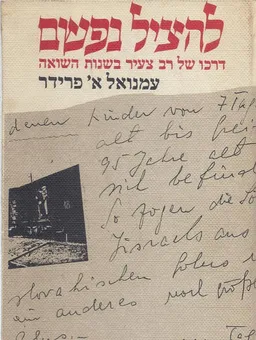 להציל נפשם
דרכו של רב צעיר בשנות השואה
עמנואל א' פרידר
denen Kinder von 7 Tag
alt bis
95 Jahre alt
sich
So zogen die
Jisraels aus
slovakischen
ein anderes noch größe